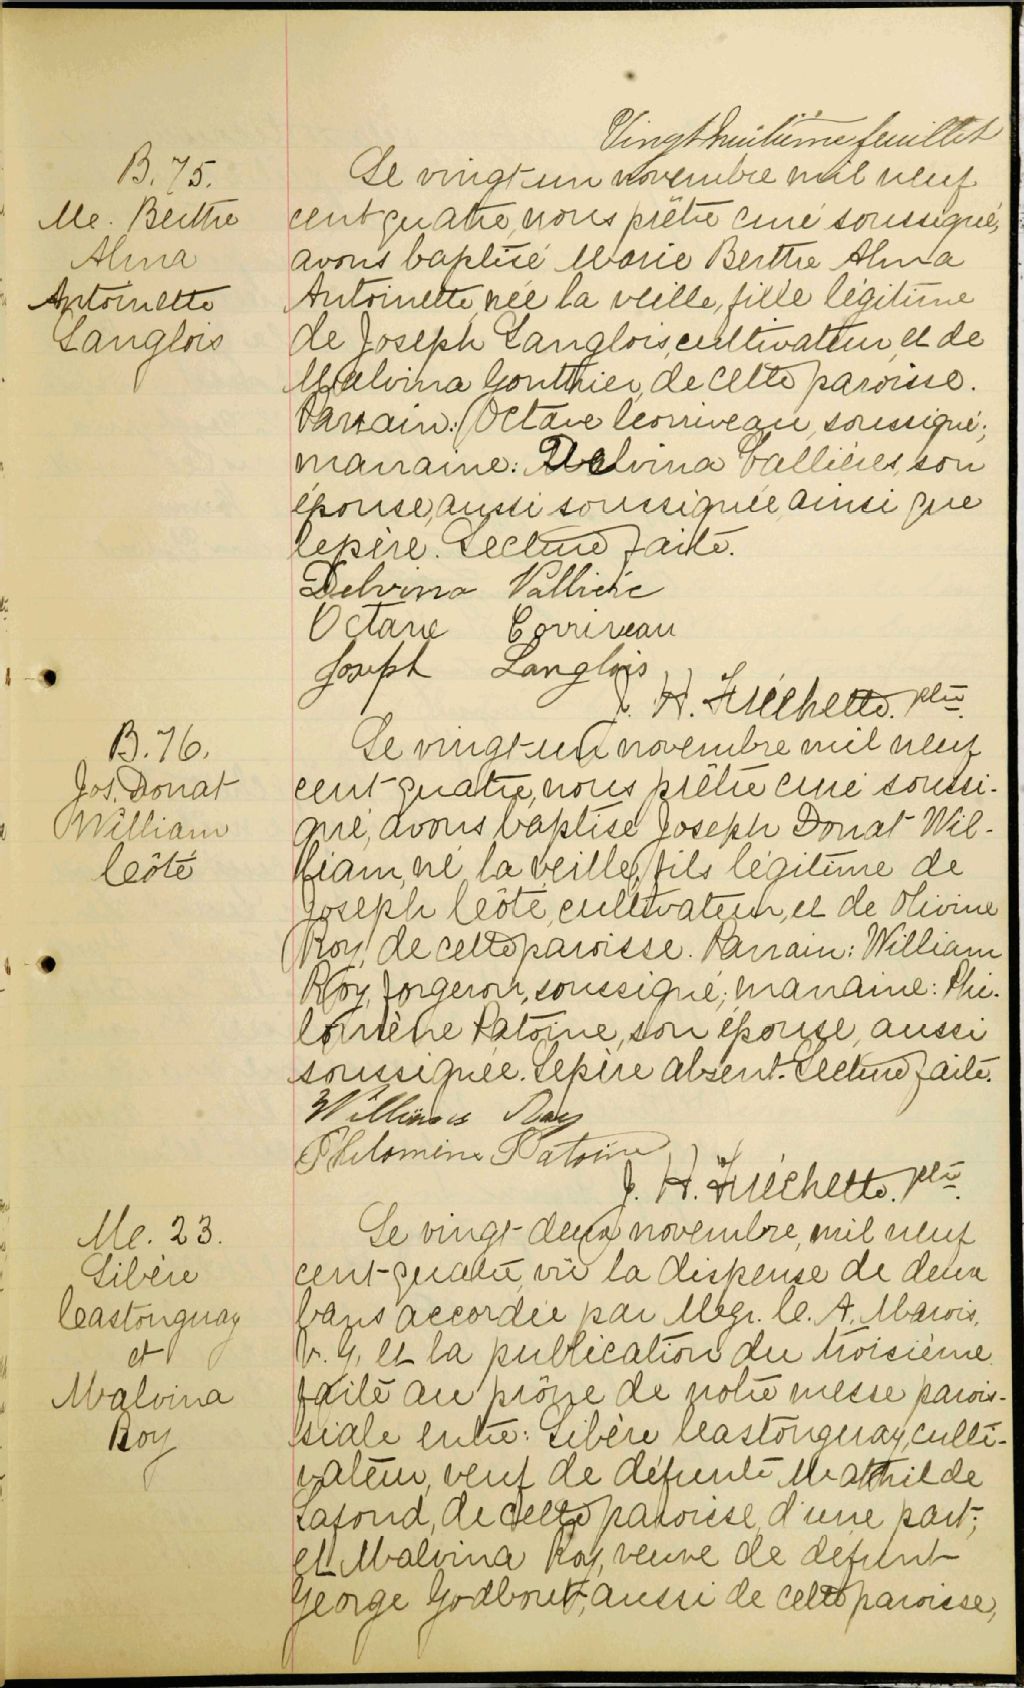 Vingt huitième feuillet
B. 75.
Me. Berthe
Alma
Antoinette
Langlois
Le vingt-un novembre mil neuf
cent quatre, nous prêtre curé soussigné,
avons baptisé Marie Berthe Alma
Antoinette, née la veille, fille légitime
de Joseph Langlois, cultivateur, et de
Malvina Gonthier, de cette paroisse.
Parrain: Octave Corriveau, soussigné;
marraine: Delvina Vallières, son
épouse, aussi soussignée, ainsi que
le père. Lecture faite.
Delvina Vallière
Octave Corriveau
Joseph Langlois
J. H. Fréchette. ptre.
B. 76.
Jos. Donat
William
Côté
Le vingt-un novembre mil neuf
cent-quatre, nous prêtre curé soussi-
gné, avons baptisé Joseph Donat Wil-
liam, né la veille, fils légitime de
Joseph Côté, cultivateur, et de Olivine
Roy, de cette paroisse. Parrain: William
Roy, forgeron, soussigné; marraine: Phi-
lomène Patoine, son épouse, aussi
soussignée. Le père absent. Lecture faite.
William Roy
Philomène Patoine
J. H. Fréchette. ptre.
M. 23.
Libère
Castonguay
et
Malvina
Roy
Le vingt-deux novembre, mil neuf
cent-quatre, vu la dispense de deux
bans accordée par Mgr. C. A. Marois,
V. G. et la publication du troisième
faite au prône de notre messe parois-
siale entre: Libère Castonguay, culti-
vateur, veuf de défunte Mathilde
Lafond, de cette paroisse, d'une part;
et Malvina Roy, veuve de défunt
George Godbout, aussi de cette paroisse,